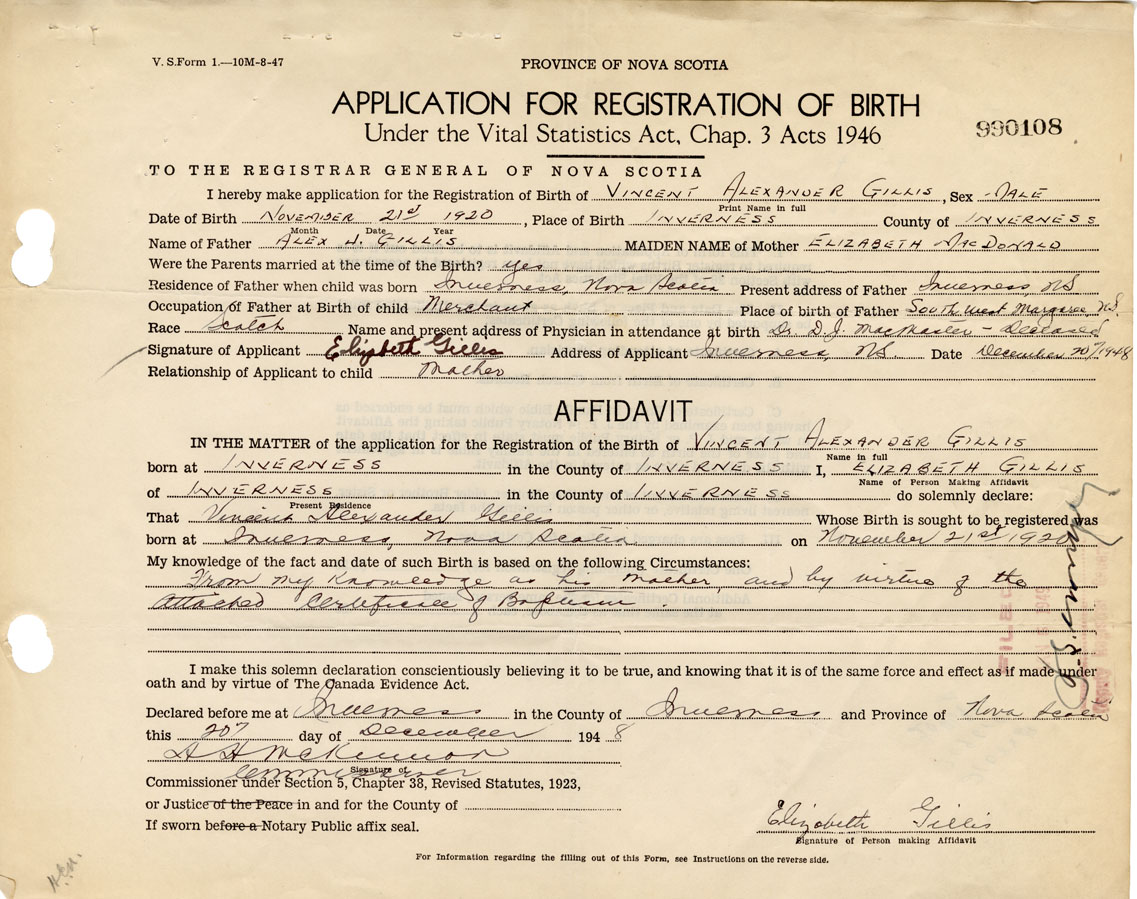 V. S.Form 1.—10M-8-47
PROVINCE OF NOVA SCOTIA
APPLICATION FOR REGISTRATION OF BIRTH
Under the Vital Statistics Act, Chap. 3 Acts 1946
990108
TO THE REGISTRAR GENERAL OF NOVA SCOTIA
I hereby make application for the Registration of Birth of VINCENT ALEXANDER GILLIS, Sex MALE
Print Name in full
Date of Birth NOVEMBER 21st 1920, Place of Birth INVERNESS County of INVERNESS
Month Date Year
Name of Father ALEX J. GILLIS MAIDEN NAME of Mother ELIZABETH MACDONALD
Were the Parents married at the time of the Birth? yes
Residence of Father when child was born Inverness, Nova Scotia Present address of Father Inverness, NS
Occupation of Father at Birth of child Merchant Place of birth of Father South West Margaree NS.
Race Scotch Name and present address of Physician in attendance at birth Dr. D. J. MacMaster - Deceased
Signature of Applicant Elizabeth Gillis Address of Applicant Inverness, NS. Date December 20/1948
Relationship of Applicant to child Mother
AFFIDAVIT
IN THE MATTER of the application for the Registration of the Birth of VINCENT ALEXANDER GILLIS
Name in full
born at INVERNESS in the County of INVERNESS I, ELIZABETH GILLIS
Name of Person Making Affidavit
of INVERNESS in the County of INVERNESS do solemnly declare:
Present Residence
That Vincent Alexander Gillis Whose Birth is sought to be registered was
born at Inverness, Nova Scotia on November 21st 1920
My knowledge of the fact and date of such Birth is based on the following Circumstances:
From my knowledge as his mother, and by virtue of the
attached Certificate of Baptism.
I make this solemn declaration conscientiously believing it to be true, and knowing that it is of the same force and effect as if made under
oath and by virtue of The Canada Evidence Act.
Declared before me at Inverness in the County of Inverness and Province of Nova Scotia
this 20 day of December 1948
A H McKinnon
Signature of
Commissioner
Commissioner under Section 5, Chapter 38, Revised Statutes, 1923,
or Justice of the Peace in and for the County of
If sworn before a Notary Public affix seal.
Elizabeth Gillis
Signature of Person making Affidavit
For Information regarding the filling out of this Form, see Instructions on the reverse side.
FILED